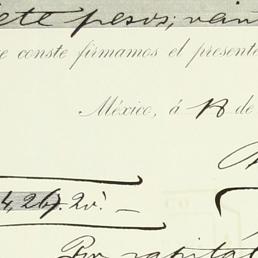 iete pesos; vein
e conste firmamos el present
México, á 18 de
4,267.20.
Por capital